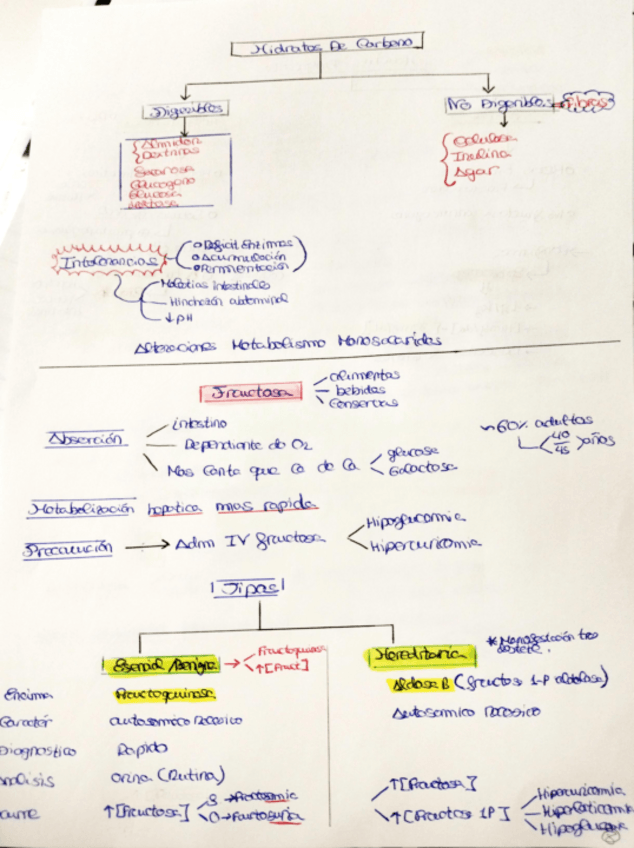 Hidratos De Carbono
Digeribles
No Digeribles
Fibras
Almidón
Dextrinas
Sacarosa
Glucogeno
Glucosa
Lactosa
Celulosa
Inulina
Agar
Intolerancias
Deficit Enzimas
Acumulación
Fermentación
Molestias intestinales
Hinchazón abdominal
↓ pH
Alteraciones Metabolismo Monosacaridos
Fructosa
alimentos
bebidas
Conservas
Absorción
intestino
Dependiente de O₂
Mas lenta que la de la
glucosa
Galactosa
~60% adultos
40
45
años
Metabolización hepatica mas rapida
Precaución → Adm IV fructosa
Hipoglucemia
Hiperuricemia
Tipos
Esencial/Benigna →
Fructoquinasa
↑[Fruct]
Hereditaria
* Manifestación tras
destete.
Enzima
Fructoquinasa
Aldolasa B (fructosa 1-P aldolasa)
Caracter
autosomico recesivo
Autosomico recesivo
Diagnostico
Rapido
Analisis
orina (Rutina)
↑[Fructosa]
S → Fructosemia
O → Fructosuria
↑[Fructosa]
↑[Fructosa 1P]
Hiperuricemia
Hiperlacticemia
Hipoglucemia